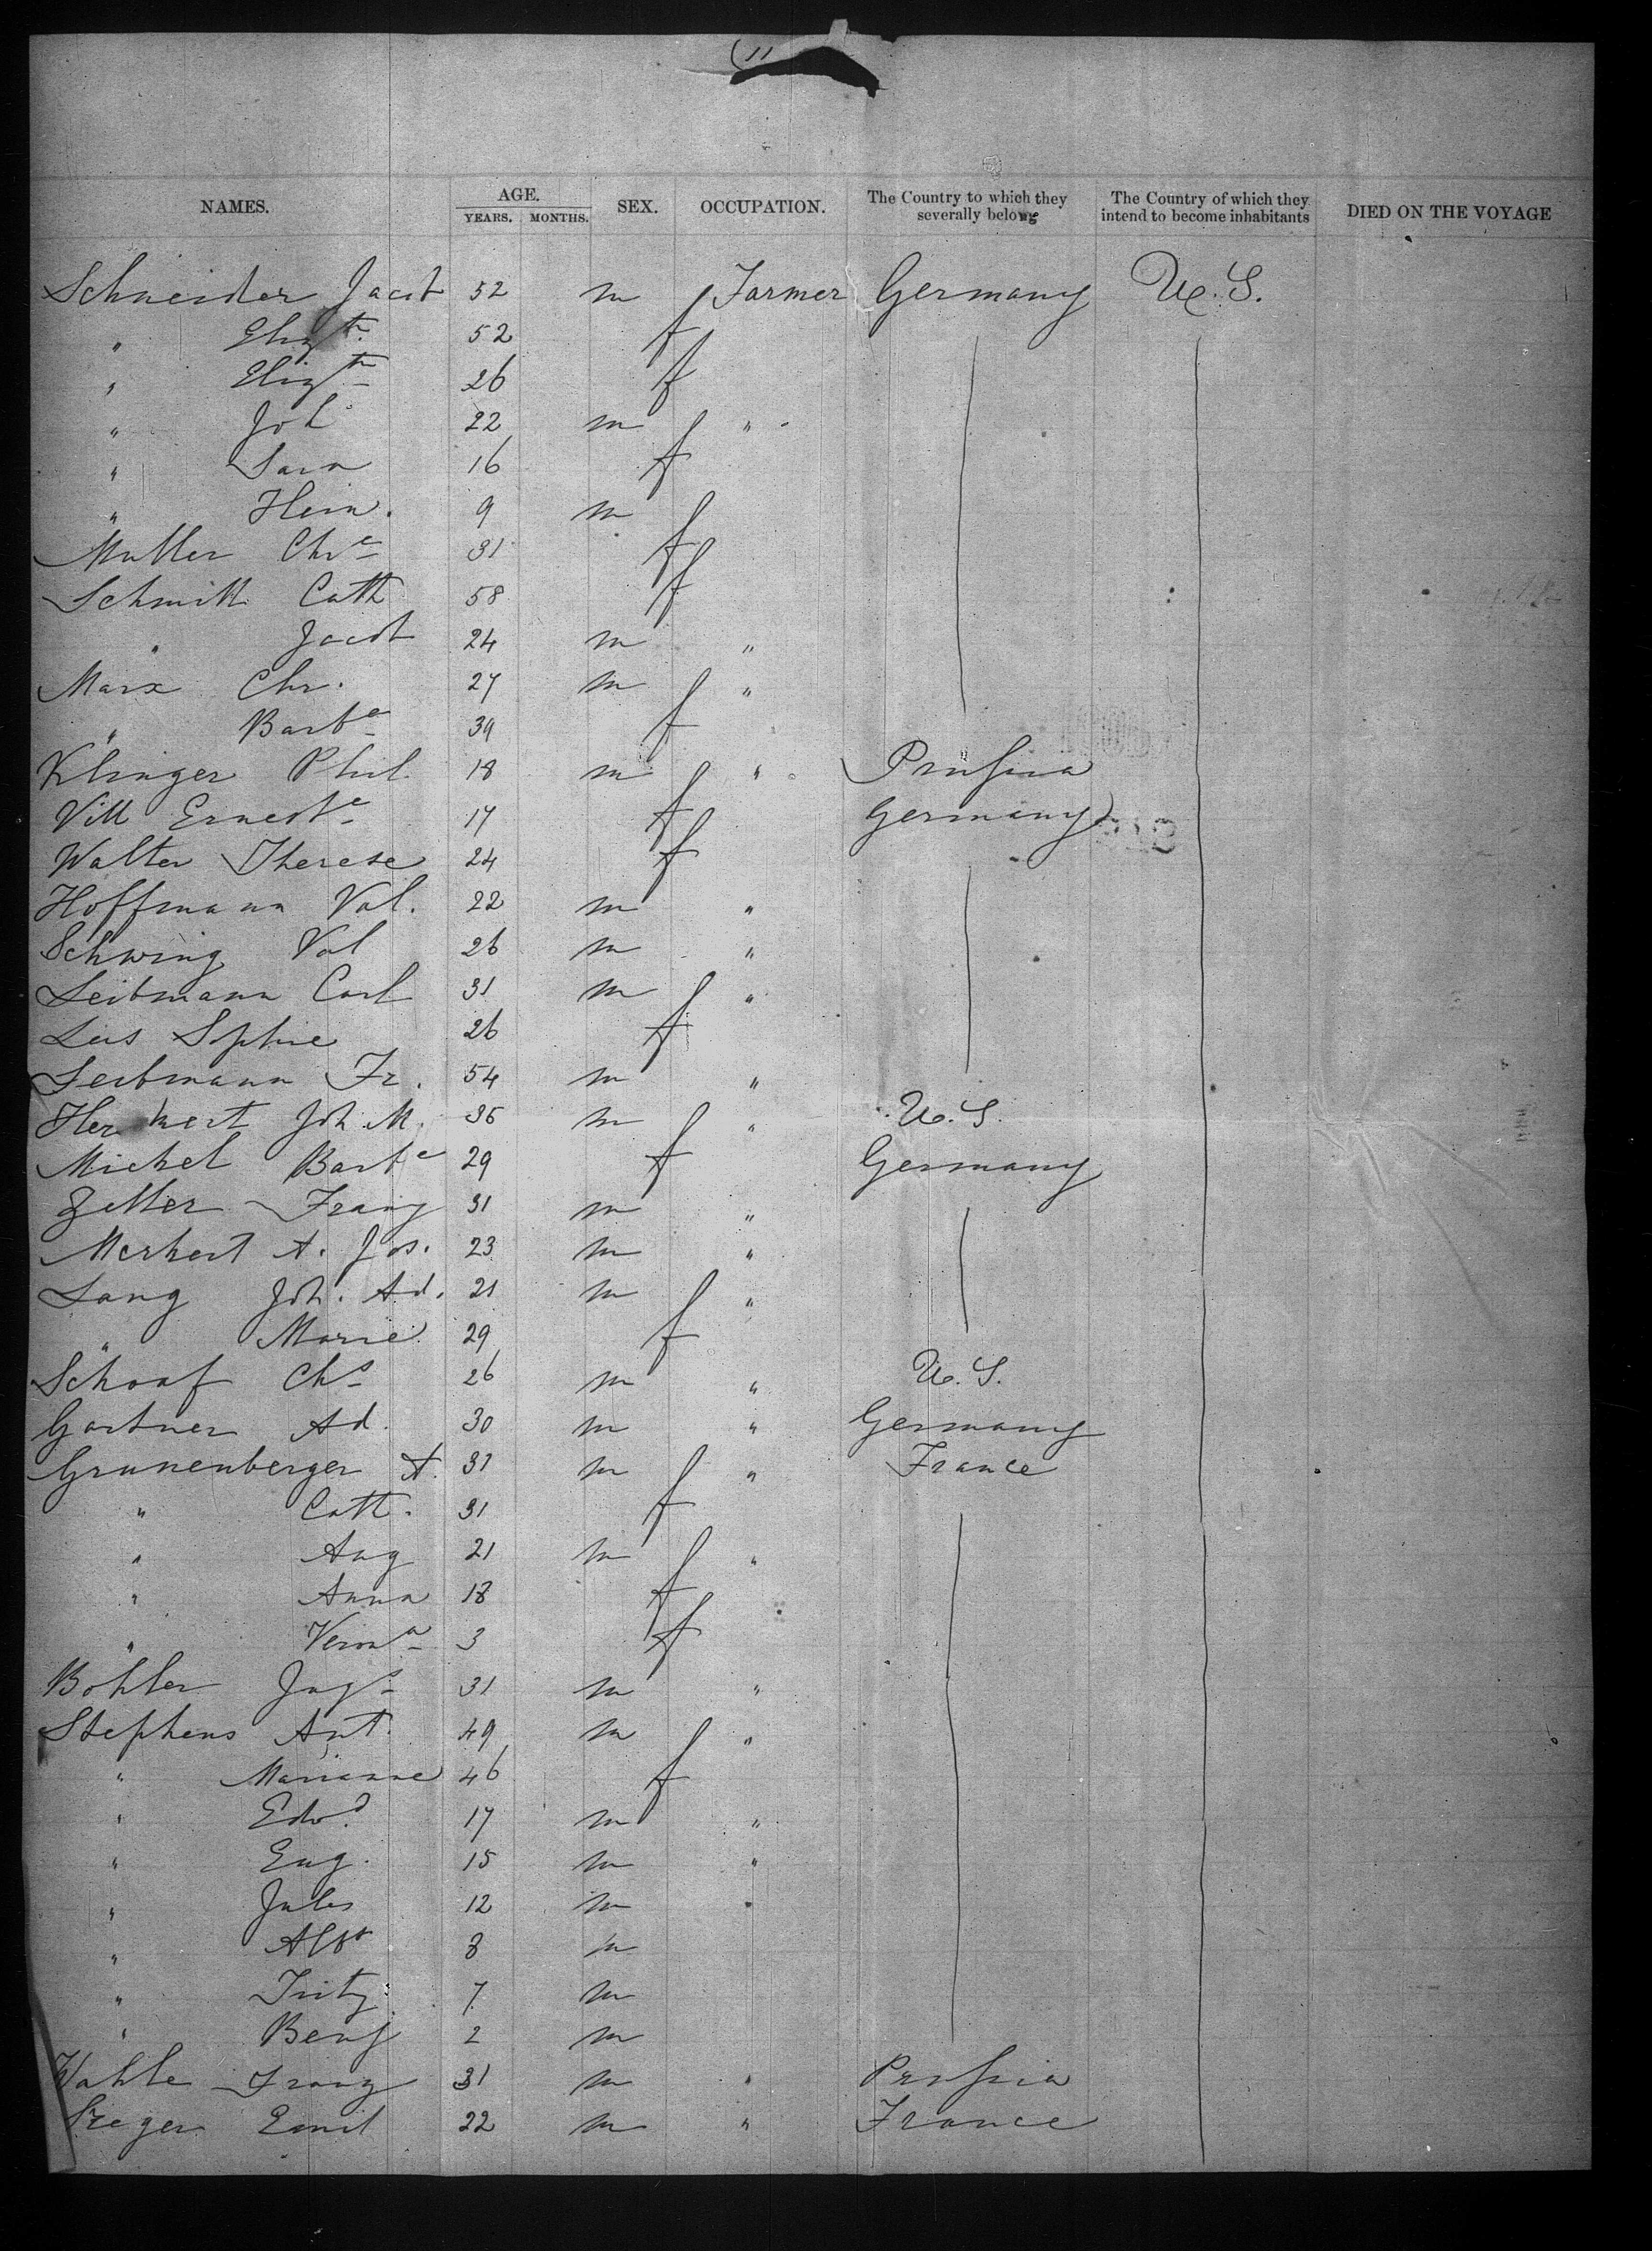 (11
NAMES. AGE. YEARS. MONTHS. SEX. OCCUPATION. The Country to which they severally belong The Country of which they intend to become inhabitants DIED ON THE VOYAGE
Schneider Jacob 52 m Farmer Germany U.S.
" Elizth 52 f
" Elizth 26 f
" Joh 22 m "
" Sara 16 f
" Hein. 9 m
Muller Chre 31 f
Schmitt Cath 58 f
" Jacob 24 m "
Marx Chr. 27 m "
" Barba 39 f
Klinger Phil. 18 m " Prussia
Vill Erneste 17 f Germany
Walter Therese 24 f
Hoffmann Val. 22 m "
Schwing Val 26 m "
Leibmann Carl 31 m "
Leis Sophie 26 f
Leibmann Fr. 54 m "
Herkert Joh. M. 35 m " U.S.
Michel Barba 29 f Germany
Zeller Franz 31 m "
Merkert A. Jos. 23 m "
Lang Joh. Ad. 21 m "
" Marie 29 f
Schaaf Chs 26 m " U.S.
Gartner Ad. 30 m " Germany
Grunenberger A. 31 m " France
" Cath. 31 f
" Aug 21 m "
" Anna 18 f
" Verona 3 f
Bohler 31 m "
Stephens Ant. 49 m "
" Marianne 46 f
" Edwd 17 m "
" Eug. 15 m "
" Jules 12 m "
" Albt 8 m
" Fritz 7 m
" Benj 2 m
Wahle Franz 31 m " Prussia
Emil 22 m " France